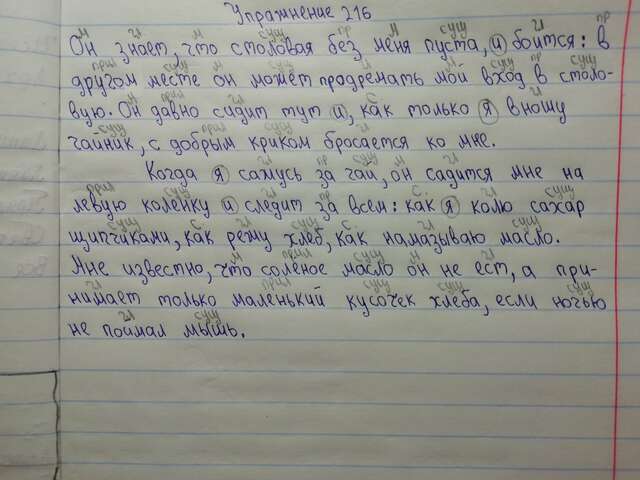 Упражнение 216
Он знает, что столовая без меня пуста, и боится: в
другом месте он может продремать мой вход в столо-
вую. Он давно сидит тут и, как только я вношу
чайник, с добрым криком бросается ко мне.
Когда я сажусь за чай, он садится мне на
левую коленку и следит за всем: как я колю сахар
щипчиками, как режу хлеб, как намазываю масло.
Мне известно, что соленое масло он не ест, а при-
нимает только маленький кусочек хлеба, если ночью
не поймал мышь.